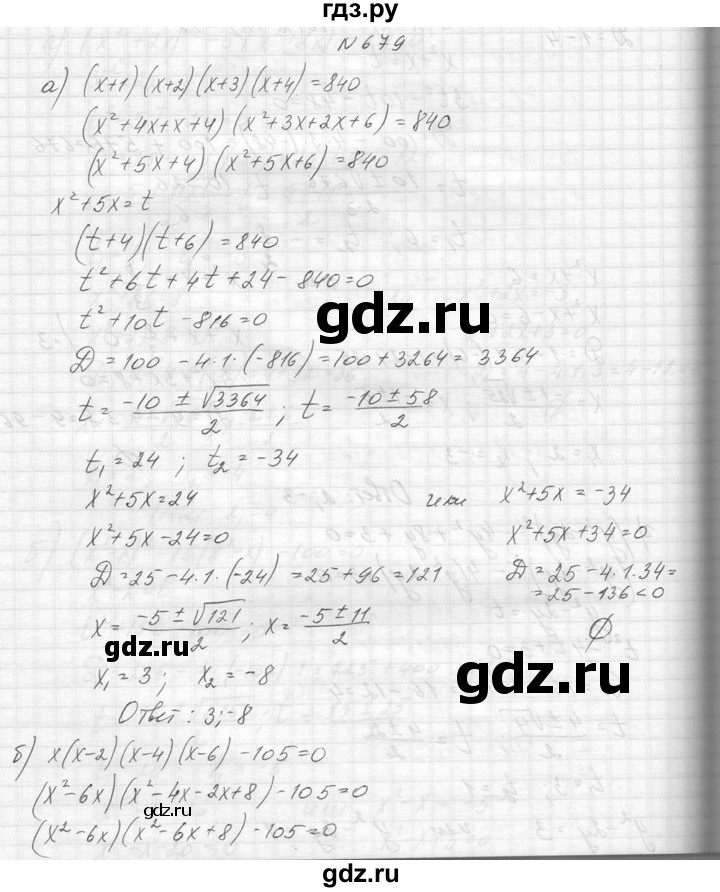 гдз.ру
№679
а) (x+1)(x+2)(x+3)(x+4)=840
(x²+4x+x+4)(x²+3x+2x+6)=840
(x²+5x+4)(x²+5x+6)=840
x²+5x=t
(t+4)(t+6)=840
t²+6t+4t+24-840=0
t²+10t-816=0
gdz.ru
Д=100-4·1·(-816)=100+3264=3364
t=(-10±√3364)/2; t=(-10±58)/2
t₁=24; t₂=-34
x²+5x=24 или x²+5x=-34
x²+5x-24=0 x²+5x+34=0
Д=25-4·1·(-24)=25+96=121 Д=25-4·1·34=
=25-136<0
x=(-5±√121)/2; x=(-5±11)/2 ∅
gdz.ru
gdz.ru
x₁=3; x₂=-8
Ответ: 3;-8
б) x(x-2)(x-4)(x-6)-105=0
(x²-6x)(x²-4x-2x+8)-105=0
gdz.ru
(x²-6x)(x²-6x+8)-105=0
gdz.ru